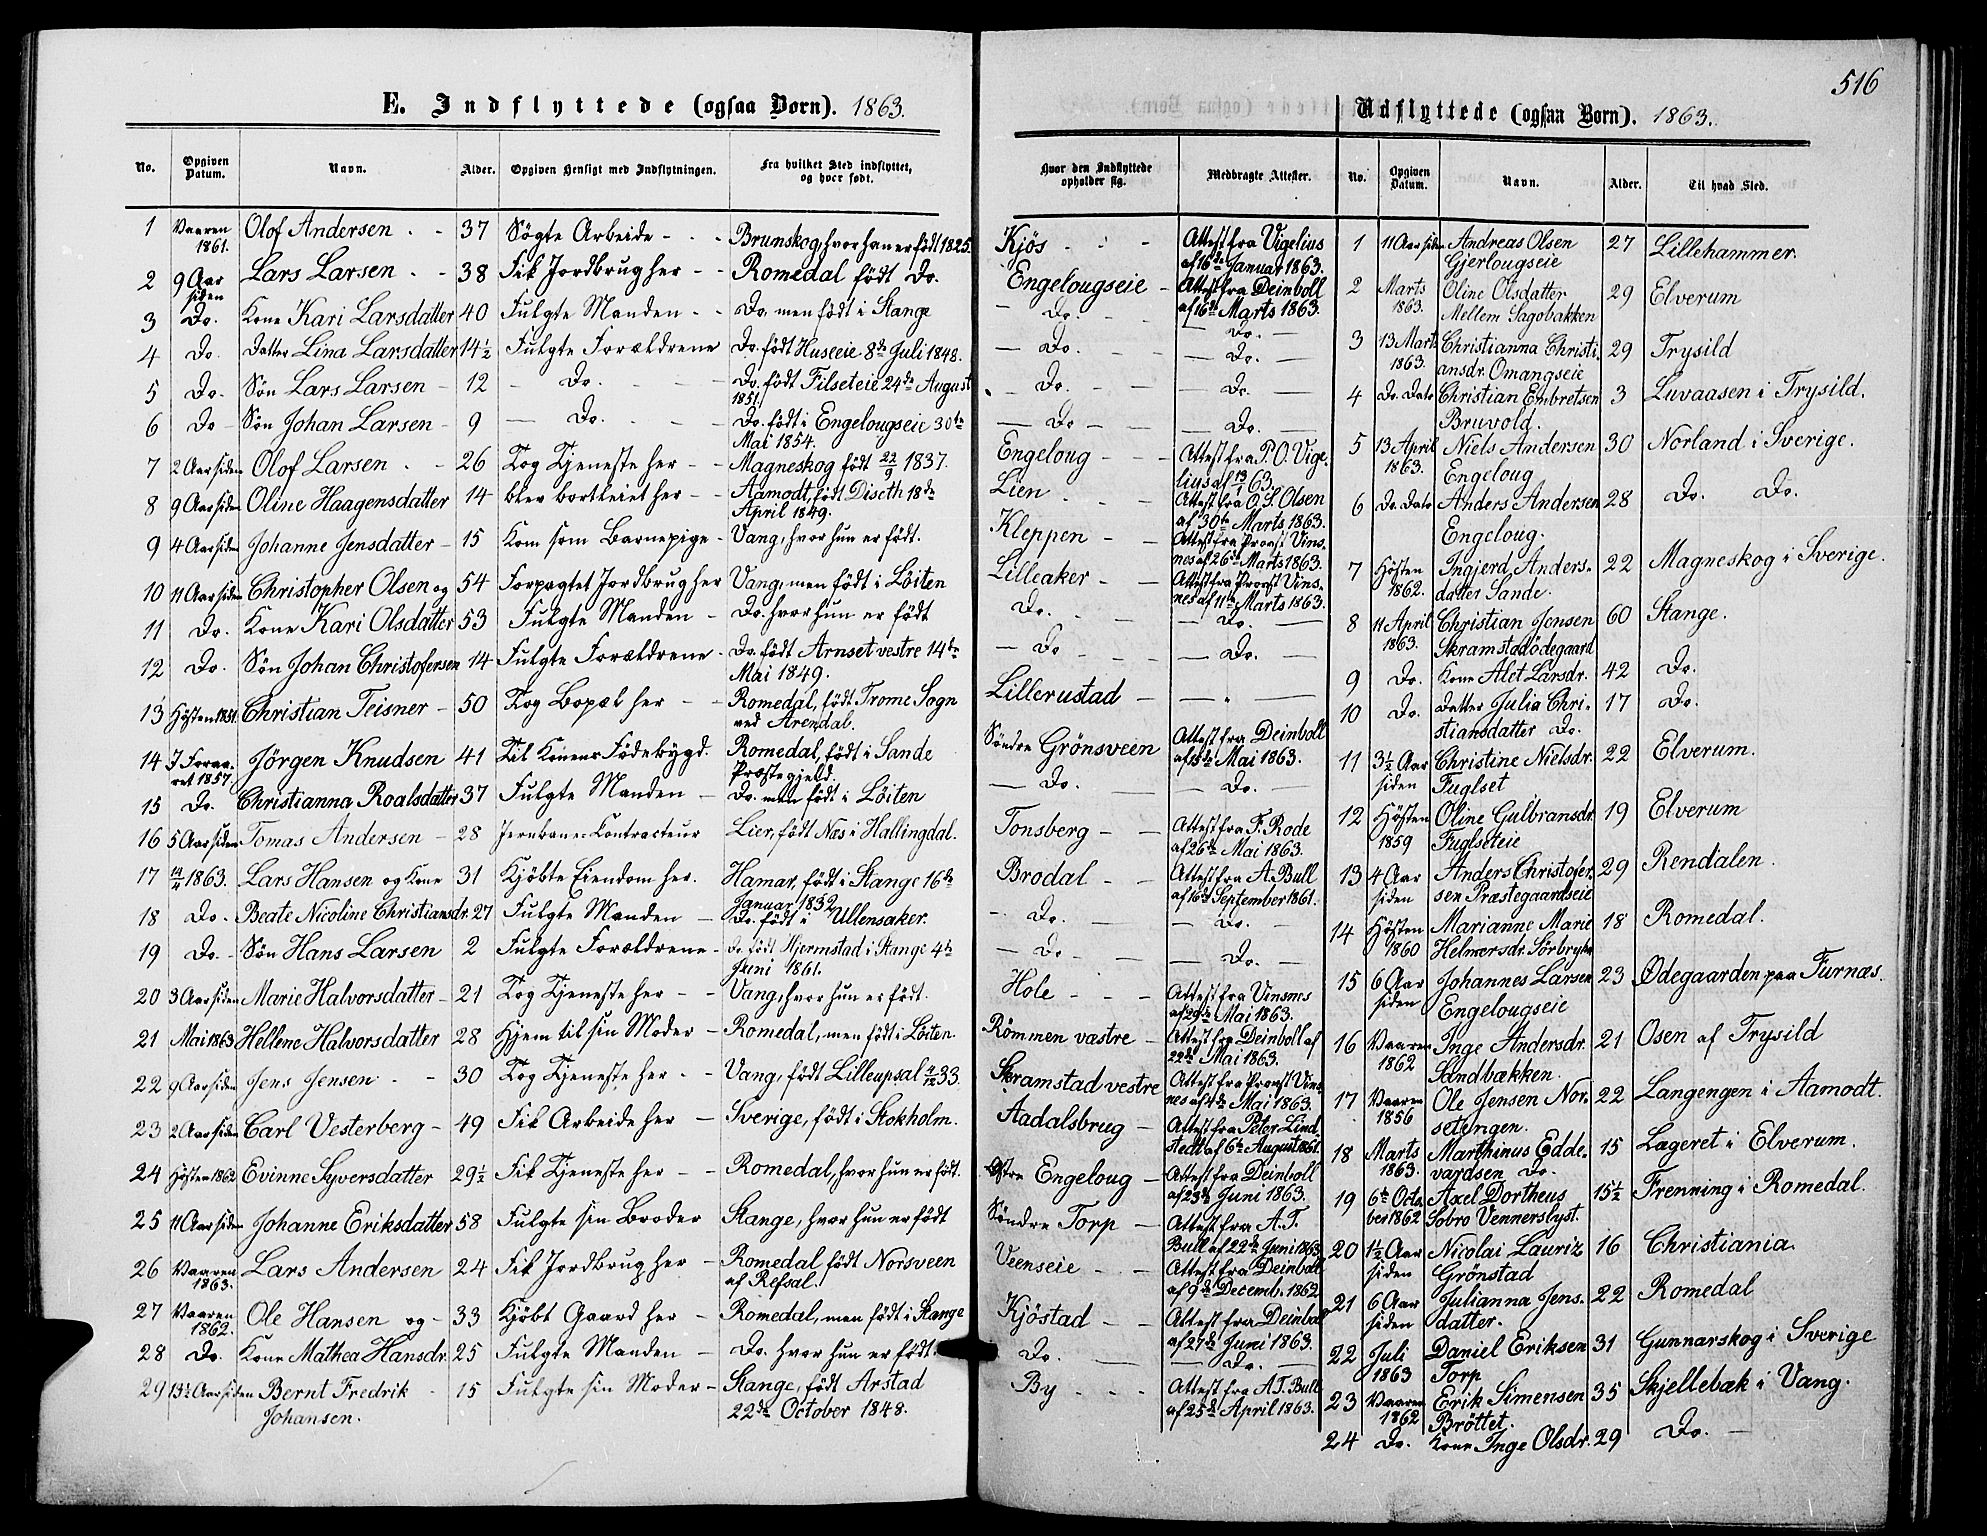 E. Indflyttede (ogsaa Børn). 1863.
No. Opgiven Datum. Navn. Alder. Opgiven Hensigt med Indflytningen. Fra hvilket Sted indflyttet, og hvor født.
1 Vaaren 1861. Olof Andersen - - 37 Søgte Arbeide - - Brunskog, hvor han er født 1825.
2 9 Aar siden Lars Larsen - - 38 Fik Jordbrug her - - Romedal født Do.
3 Do. Kone Kari Larsdatter 40 Fulgte Manden - - Do. men født i Stange
4 Do. Datter Lina Larsdatter 14½ Fulgte Forældrene Do. født Huseeie 8de Juli 1848.
5 Do. Søn Lars Larsen - 12 - Do. - - Do. født Filseteie 24de August 1851.
6 Do - Søn Johan Larsen - 9 - Do. - - Do. født i Engelougseie 30te Mai 1854.
7 2 Aar siden Olof Larsen - - 26 Tog Tjeneste her - - Magneskog født 22/9 1837.
8 9 Aar siden Oline Haagensdatter 14 blev bortleiet her - - Aamodt, født Diseth 18de April 1849.
9 4 Aar siden Johanne Jensdatter - 15 Kom som Barnepige - Vang, hvor hun er født.
10 11 Aar siden Christopher Olsen og 54 Forpagtet Jordbrug her Vang, men født i Løiten
11 Do. Kone Kari Olsdatter 53 Fulgte Manden - Do. hvor hun er født
12 Do. Søn Johan Christofersen 14 Fulgte Forældrene - Do. født Arnset vestre 14de Mai 1849.
13 Høsten 1851. Christian Teisner - 50 Tog Bopæl her - - Romedal, født Tromø Sogn ved Arendal.
14 I Foraaret 1857. Jørgen Knudsen 41 Til Konens Fødebygd. Romedal, født i Sande Præstegjeld.
15 Do. Christianna Roalsdatter 37 Fulgte Manden - Do. men født i Løiten
16 5 Aar siden Tomas Andersen - 28 Jernbane-Contracteur Lier, født Næs i Hallingdal.
17 14/4 1863. Lars Hansen og Kone 31 Kjøbte Eiendom her. Hamar, født i Stange 16de Januar 1832
18 Do. Beate Nicoline Christiansdr. 27 Fulgte Manden - Do. født i Ullensaker.
19 Do. - Søn Hans Larsen 2 Fulgte Forældrene - Do født Hjermstad i Stange 4de Juni 1861.
20 3 Aar siden Marie Halvorsdatter - 21 Tog Tjeneste her - - Vang, hvor hun er født.
21 Mai 1863 Hellene Halvorsdatter 28 Hjem til sin Moder - Romedal, men født i Løten
22 9 Aar siden Jens Jensen - - 30 Tog Tjeneste her - - Vang, født Lilleupsal 4/12 33.
23 2 Aar siden Carl Vesterberg - 49 Fik Arbeide her - Sverige, født i Stokholm.
24 Høsten 1862 Evinne Syversdatter 29½ Fik Tjeneste her - - Romedal, hvor hun er født.
25 11 Aar siden Johanne Eriksdatter 58 Fulgte sin Broder Stange, hvor hun er født
26 Vaaren 1863. Lars Andersen 24 Fik Jordbrug her - Romedal født Norsveen af Refsal.
27 Vaaren 1862. Ole Hansen og - 33 Kjøbt Gaard her - Romedal, men født i Stange
28 Do. Kone Mathea Hansdr. 25 Fulgte Manden - Do. hvor hun er født.
29 13½ Aar siden Bernt Fredrik Johansen. - 15 Fulgte sin Moder - Stange, født Arstad 22de October 1848.
516
Hvor den Indflyttede opholder sig. Medbragte Attester.
Kjøs - - - Attest fra Vigelius af 16de Januar 1863.
Engelougseie - Attest fra Deinboll af 16de Marts 1863.
- Do. - - - Do. -
- Do. - - - Do. -
- Do. - - Do.
- Do - - - Do. -
Engeloug - - - Attest fra P. O. Vigelius af 13/1 63.
Lien - - - Attest fra O. S. Olsen af 30te Marts 1863.
Kleppen - - Attest fra Provst Vinsnes af 26de Marts 1863.
Lilleaker - - Attest fra Provst Vinsnes af 11te Marts 1863.
Do. - - - Do. -
- Do - - - Do. -
Lillerustad - - " -
Søndre Grønsveen Attest fra Deinboll af 18de Mai 1863.
- Do. - - Do. -
Tonsberg - - Attest fra F. Rode af 26de Mai 1863.
Brodal - - Attest fra A. Bull af 16de September 1861.
- Do. - - Do. -
- Do - - - Do. -
Hole - - - Attest fra Vinsnes af 29de Mai 1863.
Rømmen væstre - Attest fra Deinboll af 22de Mai 1863.
Skramstad vestre Attest fra Provst Vinsnes af 4de Mai 1863.
Aadalsbrug - Attest fra Peter Lindstedt af 6te August 1861.
Østre Engeloug - Attest fra Deinboll af 23de Juni 1863.
Søndre Torp - Attest fra A. T. Bull af 22de Juni 1863
Veenseie - - Attest fra Deinboll af 9de Decemb. 1862
Kjøstad - - Attest fra Deinboll af 27de Juni 1863.
Do. - - Do. -
By - - - Attest fra A T. Bull af 25de April 1863.
Udflyttede (ogsaa Børn). 1863.
No. Opgiven Datum. Navn. Alder. Til hvad Sted.
1 11 Aar siden Andreas Olsen Gjerlougseie 27 Lillehammer.
2 Marts 1863. Oline Olsdatter Mellem Sagobakken 29 Elverum
3 13 Marts 1863. Christianna Christiansdr. Omangseie 29 Trysild
4 Do. Dato Christian Embretsen Bruvold. 3 Luvaasen i Trysild.
5 13 April 1863. Niels Andersen Engeloug 30 Norland i Sverige.
6 Do. Dato Anders Andersen Engeloug. 28 Do. Do.
7 Høsten 1862. Ingjerd Andersdatter Sande. 22 Magneskog i Sverige.
8 11 April 1863. Christian Jensen Skramstadødegaard 60 Stange.
9 Do. Kone Alet Larsdr. 42 Do.
10 Do. Datter Julia Christiansdatter Do. 17 Do.
11 3½ Aar siden Christine Nielsdr. Fuglset 22 Elverum.
12 Høsten 1859 Oline Gulbransdr. Fuglseteie 19 Elverum
13 4 Aar siden Anders Christofersen Præstegaardseie 29 Rendalen.
14 Høsten 1860 Marianne Marie Helmersdr. Sørbryhn 18 Romedal.
15 6 Aar siden Johannes Larsen Engelougseie 23 Ødegaarden paa Furnæs.
16 Vaaren 1862 Inge Andersdr. Sandbækken. 21 Osen af Trysild
17 Vaaren 1856 Ole Jensen Norsetengen. 22 Langengen i Aamodt.
18 Marts 1863. Marthinus Eddevardsen Do. 15 Lageret i Elverum.
19 6te October 1862 Axel Dortheus Sobro Vennerslyst. 15½ Frenning i Romedal.
20 1½ Aar siden Nicolai Lauriz Grønstad 16 Christiania.
21 6 Aar siden Julianna Jensdatter. 22 Romedal
22 Juli 1863 Daniel Eriksen Torp 31 Gunnarskog i Sverige
23 Vaaren 1862 Erik Simensen Brøttet. 35 Skjellebæk i Vang.
24 Do. Kone Inge Olsdr. 29 Do. -